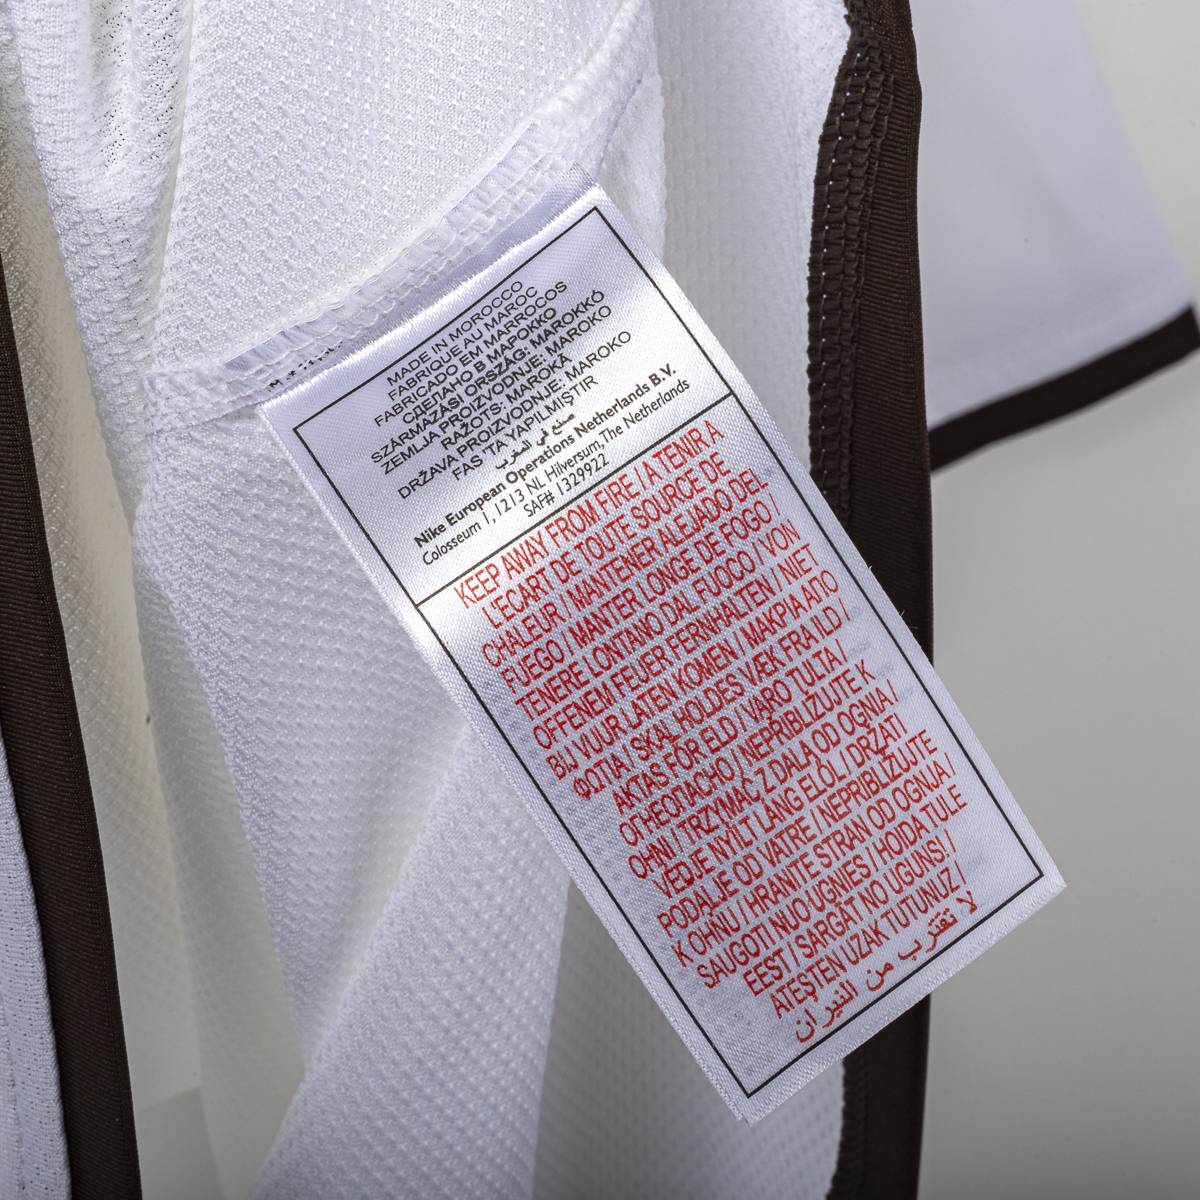 MADE IN MOROCCO
FABRIQUE AU MAROC
FABRICADO EM MARROCOS
СДЕЛАНО В МАРОККО
SZÁRMAZÁSI ORSZÁG: MAROKKÓ
ZEMLJA PROIZVODNJE: MAROKO
RAŽOTS: MAROKA
DRŽAVA PROIZVODNJE: MAROKO
FAS 'TA YAPILMIŞTIR
صنع في المغرب
Nike European Operations Netherlands B.V.
Colosseum 1, 1213 NL Hilversum,The Netherlands
SAF# 1329922
KEEP AWAY FROM FIRE / A TENIR A
L'ECART DE TOUTE SOURCE DE
CHALEUR / MANTENER ALEJADO DEL
FUEGO / MANTER LONGE DE FOGO /
TENERE LONTANO DAL FUOCO / VON
OFFENEM FEUER FERNHALTEN / NIET
BIJ VUUR LATEN KOMEN / ΜΑΚΡΙΑ ΑΠΟ
ΦΩΤΙΑ / SKAL HOLDES VÆK FRA ILD /
AKTAS FÖR ELD / VARO TULTA /
ОГНЕОПАСНО / NEPŘIBLIŽUJTE K
OHNI / TRZYMAĆ Z DALA OD OGNIA /
VEDJE NYÍLT LÁNG ELŐL / DRŽATI
PODALJE OD VATRE / NEPRIBLIŽUJTE
K OHŇU / HRANITE STRAN OD OGNJA /
SAUGOTI NUO UGNIES / HOIDA TULE
EEST / SARGĀT NO UGUNS! /
ATEŞTEN UZAK TUTUNUZ /
لا تقترب من النيران